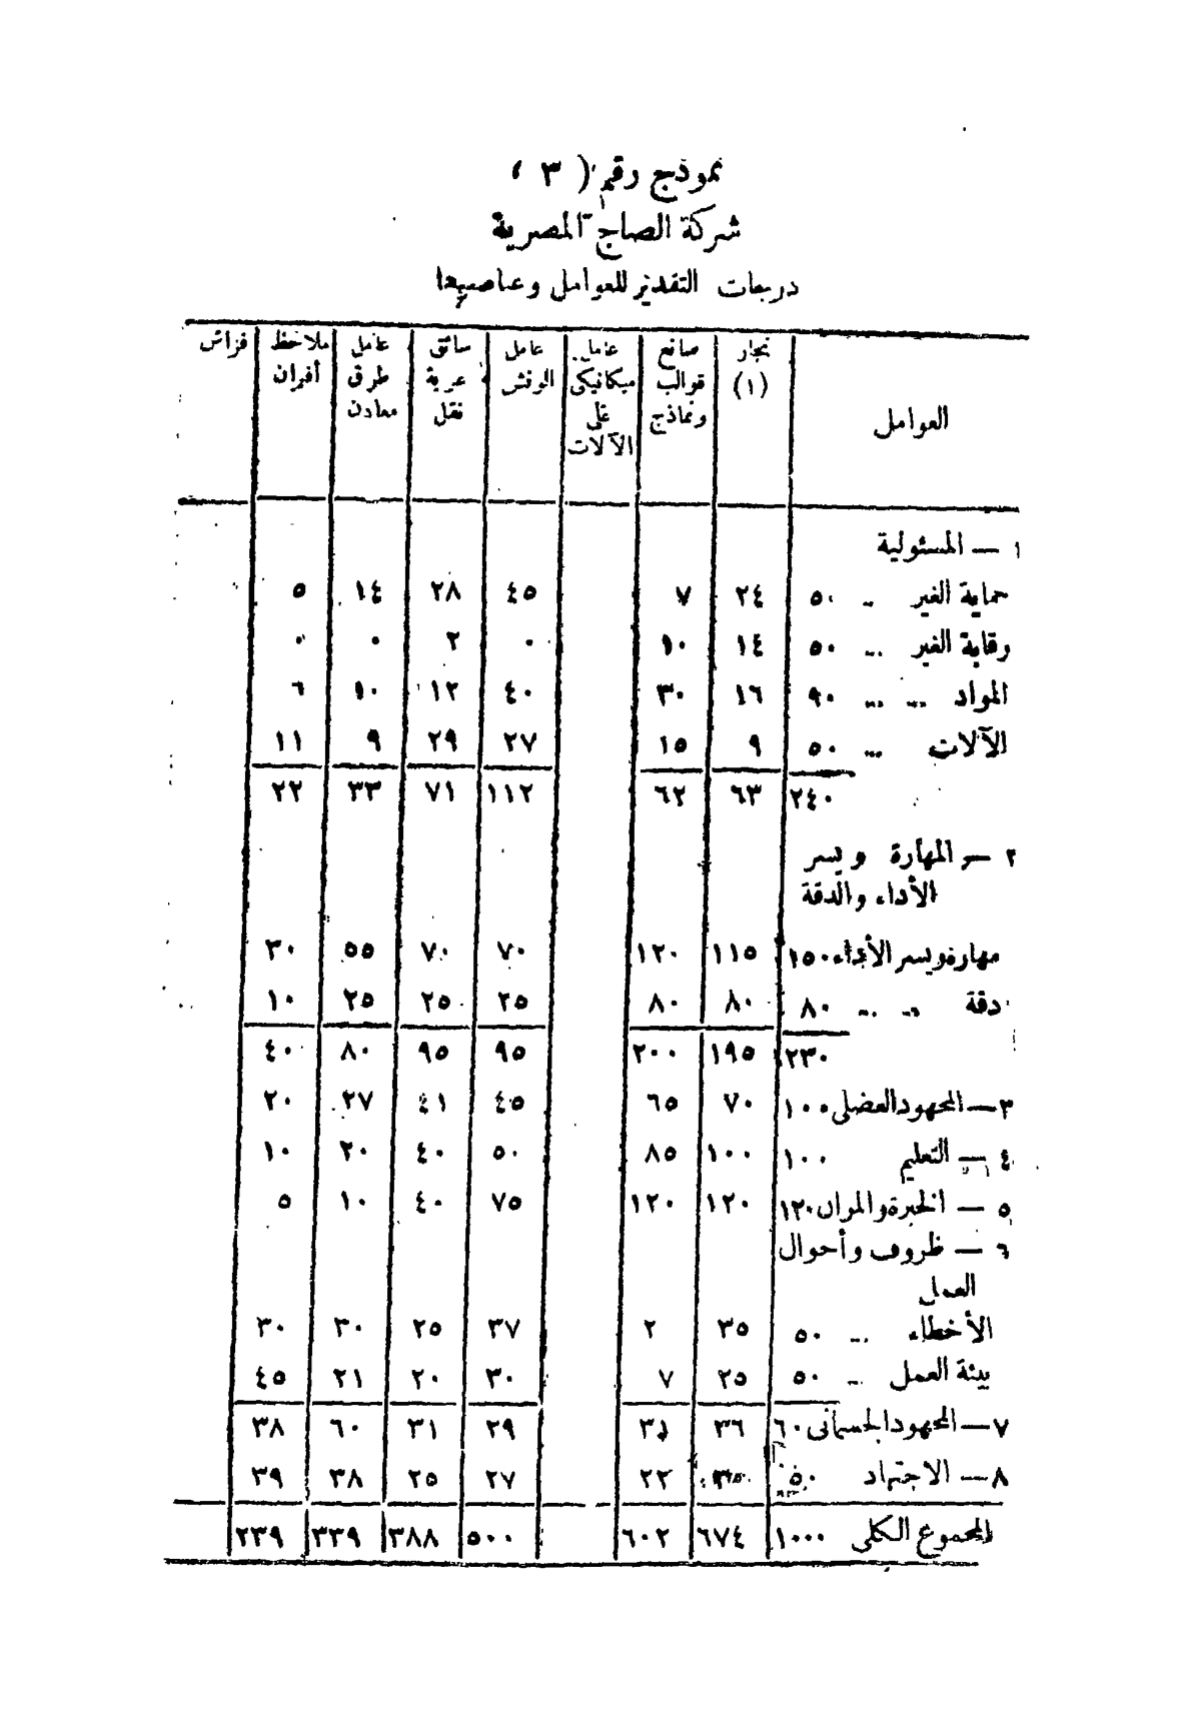 نموذج رقم ( ٣ )
شركة الصاج المصرية
درجات التقدير للعوامل وعناصرها
العوامل | نجار (١) | صانع قوالب ونماذج | عامل ميكانيكى على الآلات | عامل الونش | سائق عربة نقل | عامل طرق معادن | ملاحظ أفران | فراش
١ — المسئولية
حماية الغير .. ٥٠ ٢٤ ٧ ٤٥ ٢٨ ١٤ ٥
رقابة الغير ... ٥٠ ١٤ ١٠ ٠ ٢ ٠ ٠
المواد ... ... ٩٠ ١٦ ٣٠ ٤٠ ١٢ ١٠ ٦
الآلات ... ٥٠ ٩ ١٥ ٢٧ ٢٩ ٩ ١١
٢٤٠ ٦٣ ٦٢ ١١٢ ٧١ ٣٣ ٢٢
٢ — المهارة ويسر
الأداء والدقة
مهارة ويسر الأداء ١٥٠ ١١٥ ١٢٠ ٧٠ ٧٠ ٥٥ ٣٠
دقة ... ... ٨٠ ٨٠ ٨٠ ٢٥ ٢٥ ٢٥ ١٠
٢٣٠ ١٩٥ ٢٠٠ ٩٥ ٩٥ ٨٠ ٤٠
٣ — المجهود العضلى ١٠٠ ٧٠ ٦٥ ٤٥ ٤١ ٢٧ ٢٠
٤ — التعليم ١٠٠ ١٠٠ ٨٥ ٥٠ ٤٠ ٢٠ ١٠
٥ — الخبرة والمران ١٢٠ ١٢٠ ١٢٠ ٧٥ ٤٠ ١٠ ٥
٦ — ظروف وأحوال
العمل
الأخطاء ... ٥٠ ٣٥ ٢ ٣٧ ٢٥ ٣٠ ٣٠
بيئة العمل .. ٥٠ ٢٥ ٧ ٣٠ ٢٠ ٢١ ٤٥
٧ — المجهود الجسمانى ٦٠ ٣٦ ٢٩ ٣١ ٦٠ ٣٨
٨ — الاجتهاد ٥٠ ٢٢ ٢٧ ٢٥ ٣٨ ٣٩
المجموع الكلى ١٠٠٠ ٦٧٤ ٦٠٢ ٥٠٠ ٣٨٨ ٣٣٩ ٢٣٩